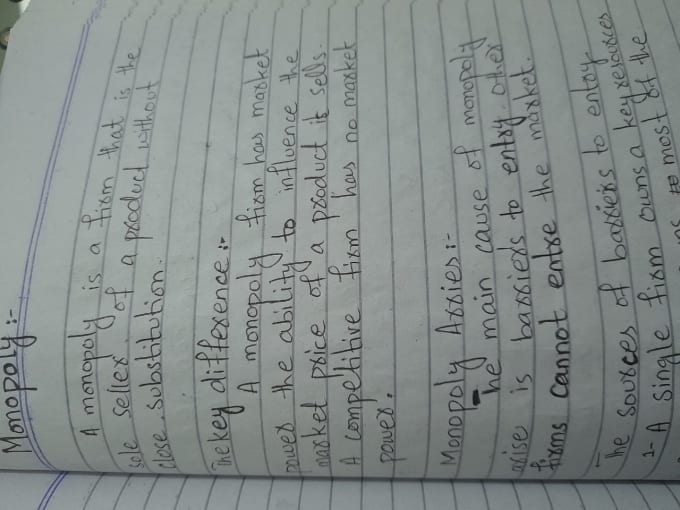 Monopoly :-
A monopoly is a firm that is the
sole seller of a product without
close substitution.
The key difference :-
A monopoly firm has market
power the ability to influence the
market price of a product is sells.
A competitive firm has no market
power.
Monopoly Arries :-
The main cause of monopoly
arise is barriers to entry. Other
firms cannot entre the market.
The sources of barriers to entry
1- A single firm owns a key resources
most of the